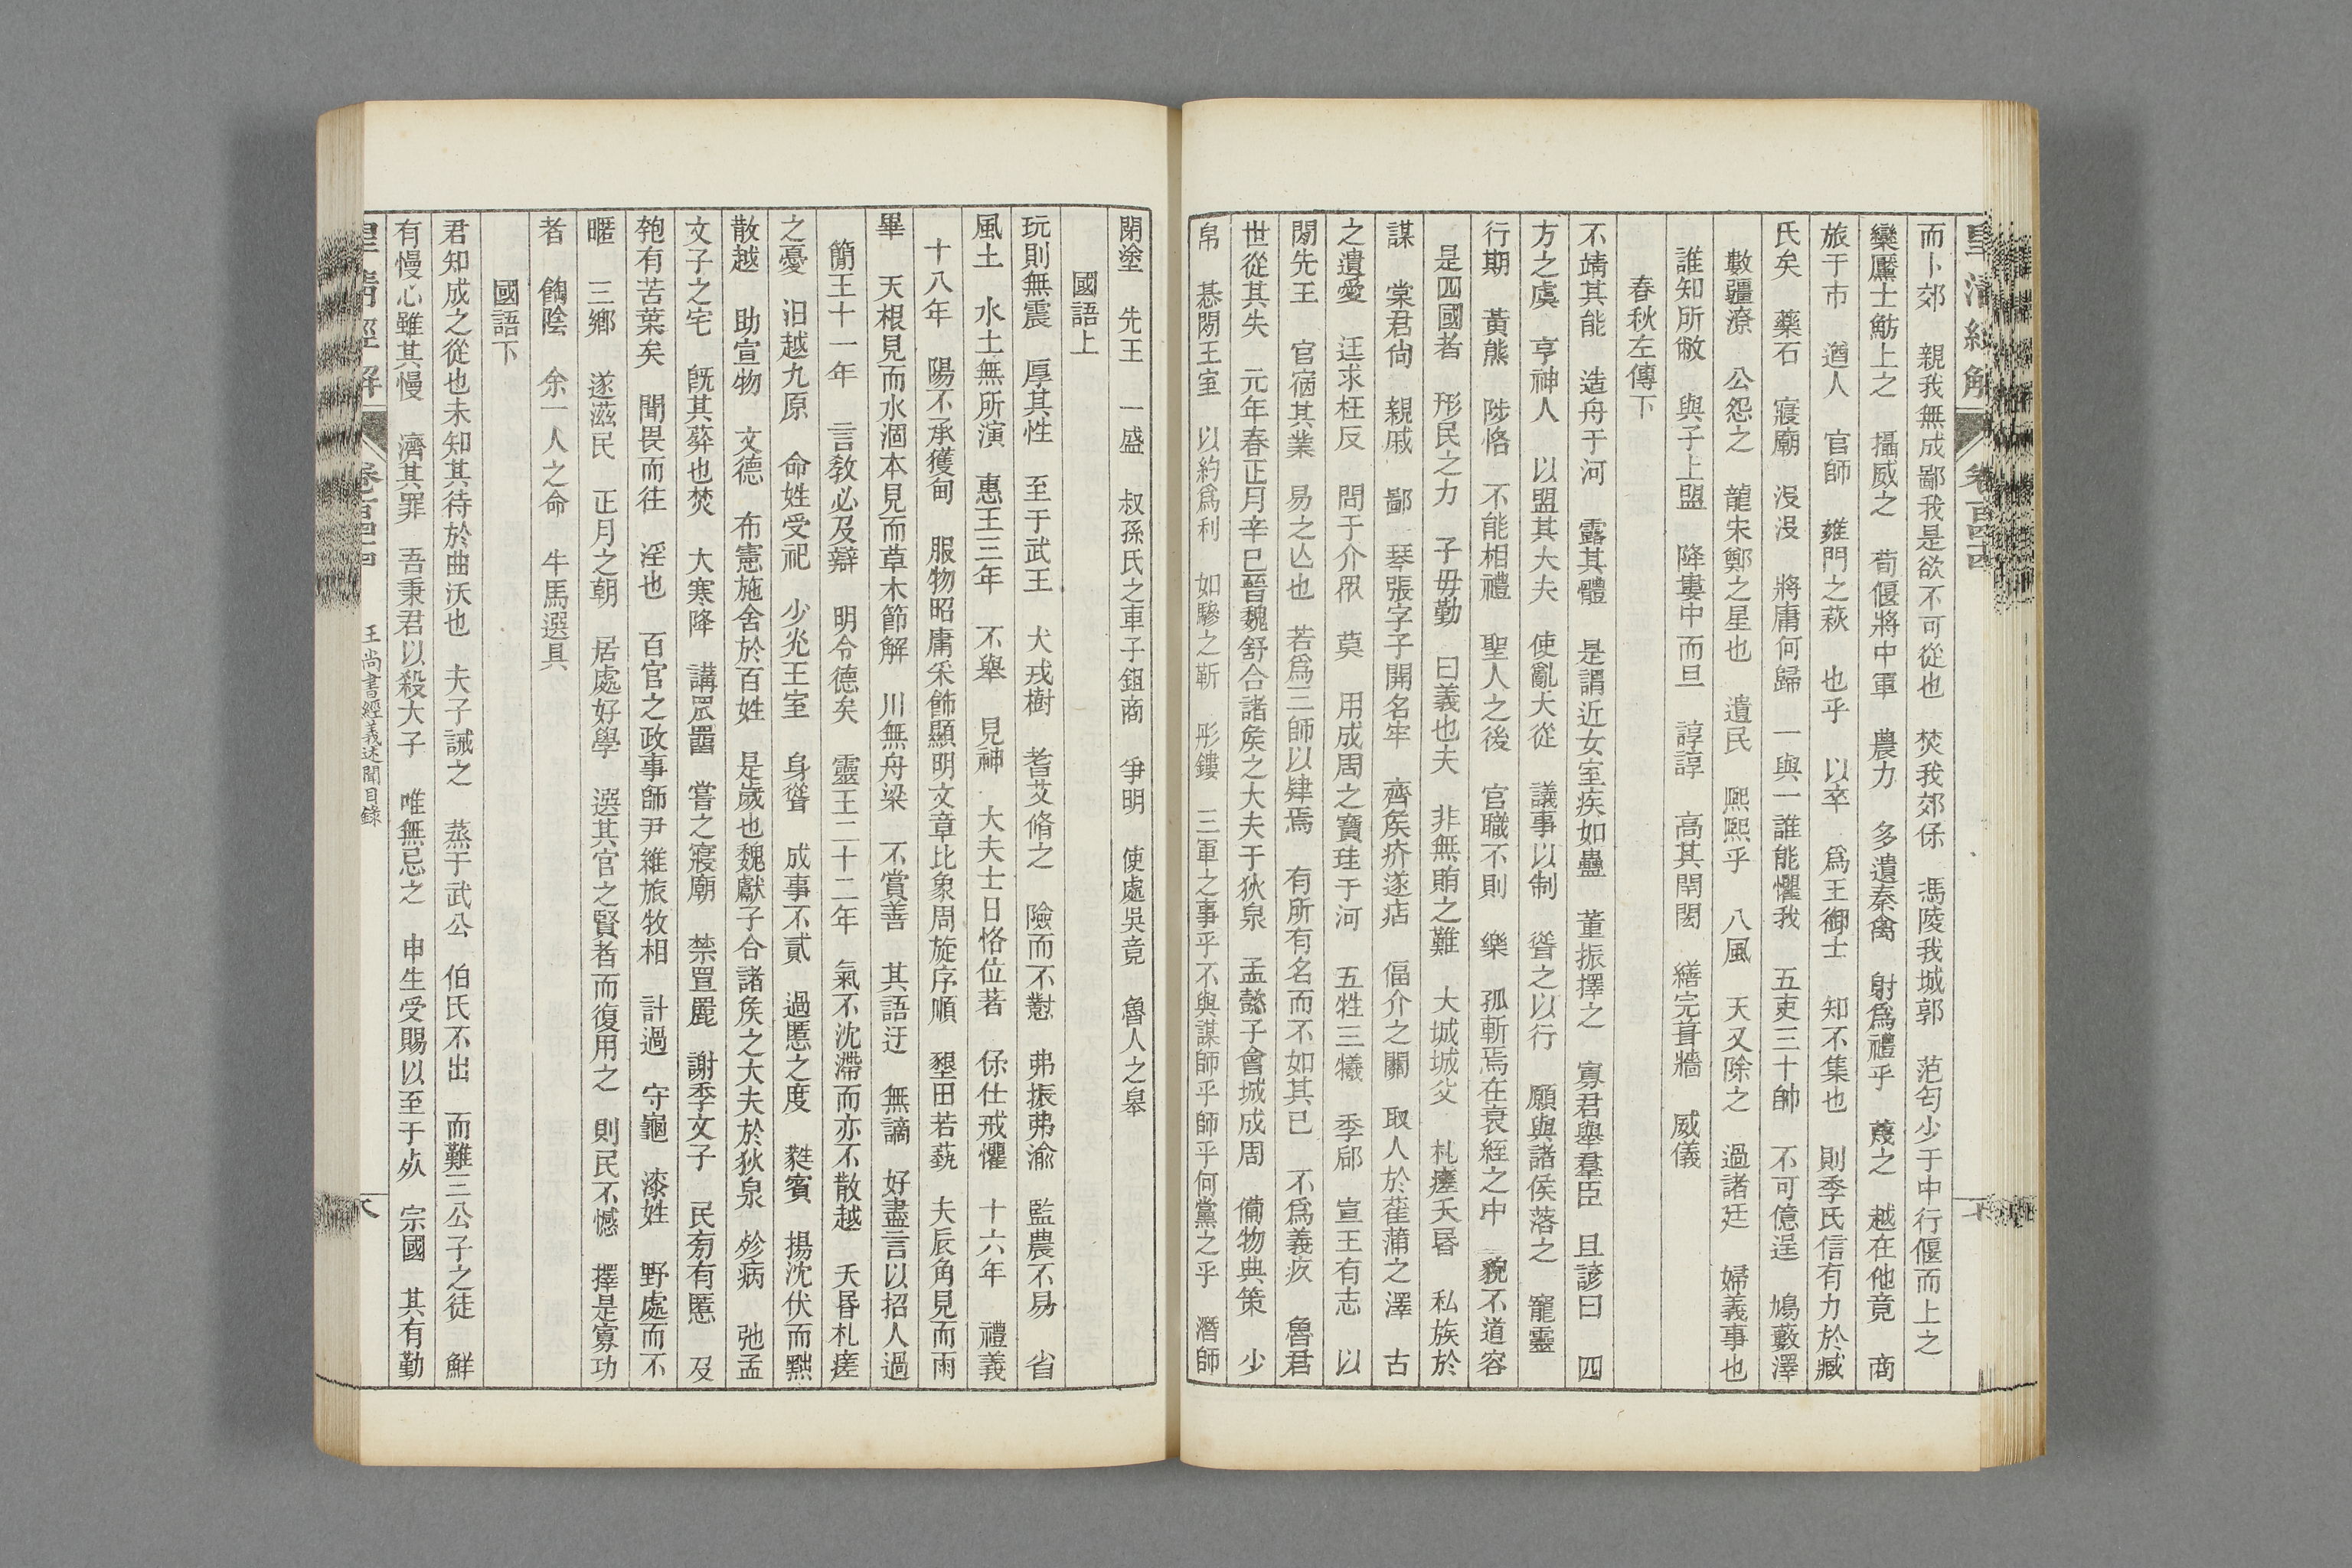 皇清經解 卷百四十四
而卜郊　親我無成鄙我是欲不可從也　焚我郊保　馮陵我城郭　范匄少于中行偃而上之
欒黶士魴上之　攝威之　荀偃將中軍　農力　多遺秦禽　射爲禮乎　蔑之　越在他竟　商
旅于市　遒人　官師　雍門之萩　也乎　以卒　爲王御士　知不集也　則季氏信有力於臧
氏矣　藥石　寢廟　沒沒　將庸何歸　一與一誰能懼我　五吏三十帥　不可億逞　鳩藪澤
數疆潦　公怨之　龍宋鄭之星也　遺民　熙熙乎　八風　天又除之　過諸廷　婦義事也
誰知所敝　與子上盟　降婁中而旦　諄諄　高其閈閎　繕完葺牆　威儀
春秋左傳下
不靖其能　造舟于河　露其體　是謂近女室疾如蠱　董振擇之　寡君舉羣臣　且諺曰　四
方之虞　亨神人　以盟其大夫　使亂大從　議事以制　聳之以行　願與諸侯落之　寵靈
行期　黃熊　陟恪　不能相禮　聖人之後　官職不則　樂　孤斬焉在衰絰之中　貌不道容
是四國者　形民之力　子毋勤　曰義也夫　非無賄之難　大城城父　札瘥夭昬　私族於
謀　棠君尙　親戚　鄙　琴張字子開名牢　齊矦疥遂痁　偪介之關　取人於萑蒲之澤　古
之遺愛　迋求枉反　問于介眾　莫　用成周之寶珪于河　五牲三犧　季郈　宣王有志　以
閒先王　官宿其業　易之亾也　若爲三師以肄焉　有所有名而不如其已　不爲義疚　魯君
世從其失　元年春正月辛巳晉魏舒合諸矦之大夫于狄泉　孟懿子會城成周　備物典策　少
帛　惎閒王室　以約爲利　如驂之靳　彤鏤　三軍之事乎不與謀師乎師乎何黨之乎　潛師
閉塗　先王　一盛　叔孫氏之車子鉏商　爭明　使處吳竟　魯人之皋
國語上
玩則無震　厚其性　至于武王　犬戎樹　耆艾脩之　險而不懟　弗振弗渝　監農不易　省
風土　水土無所演　惠王三年　不舉　見神　大夫士日恪位著　保仕戒懼　十六年　禮義
十八年　陽不承獲甸　服物昭庸采飾顯明文章比象周旋序順　墾田若蓺　夫辰角見而雨
畢　天根見而水涸本見而草木節解　川無舟梁　不賞善　其語迂　無謫　好盡言以招人過
簡王十一年　言敎必及辯　明令德矣　靈王二十二年　氣不沈滯而亦不散越　夭昬札瘥
之憂　汩越九原　命姓受祀　少光王室　身聳　成事不貳　過慝之度　蕤賓　揚沈伏而黜
散越　助宣物　文德　布憲施舍於百姓　是歲也魏獻子合諸矦之大夫於狄泉　殄病　弛孟
文子之宅　旣其葬也焚　大寒降　講罛罶　嘗之寢廟　禁罝麗　謝季文子　民㫄有慝　及
匏有苦葉矣　聞畏而往　淫也　百官之政事師尹維旅牧相　計過　守龜　漆姓　野處而不
暱　三鄉　遂滋民　正月之朝　居處好學　選其官之賢者而復用之　則民不憾　擇是寡功
者　餉陰　余一人之命　牛馬選具
國語下
君知成之從也未知其待於曲沃也　夫子誡之　烝于武公　伯氏不出　而難三公子之徒　鮮
有慢心雖其慢　濟其罪　吾秉君以殺大子　唯無忌之　申生受賜以至于死　宗國　其有勤
皇淸經解 卷百四十四 王尙書經義述聞目錄